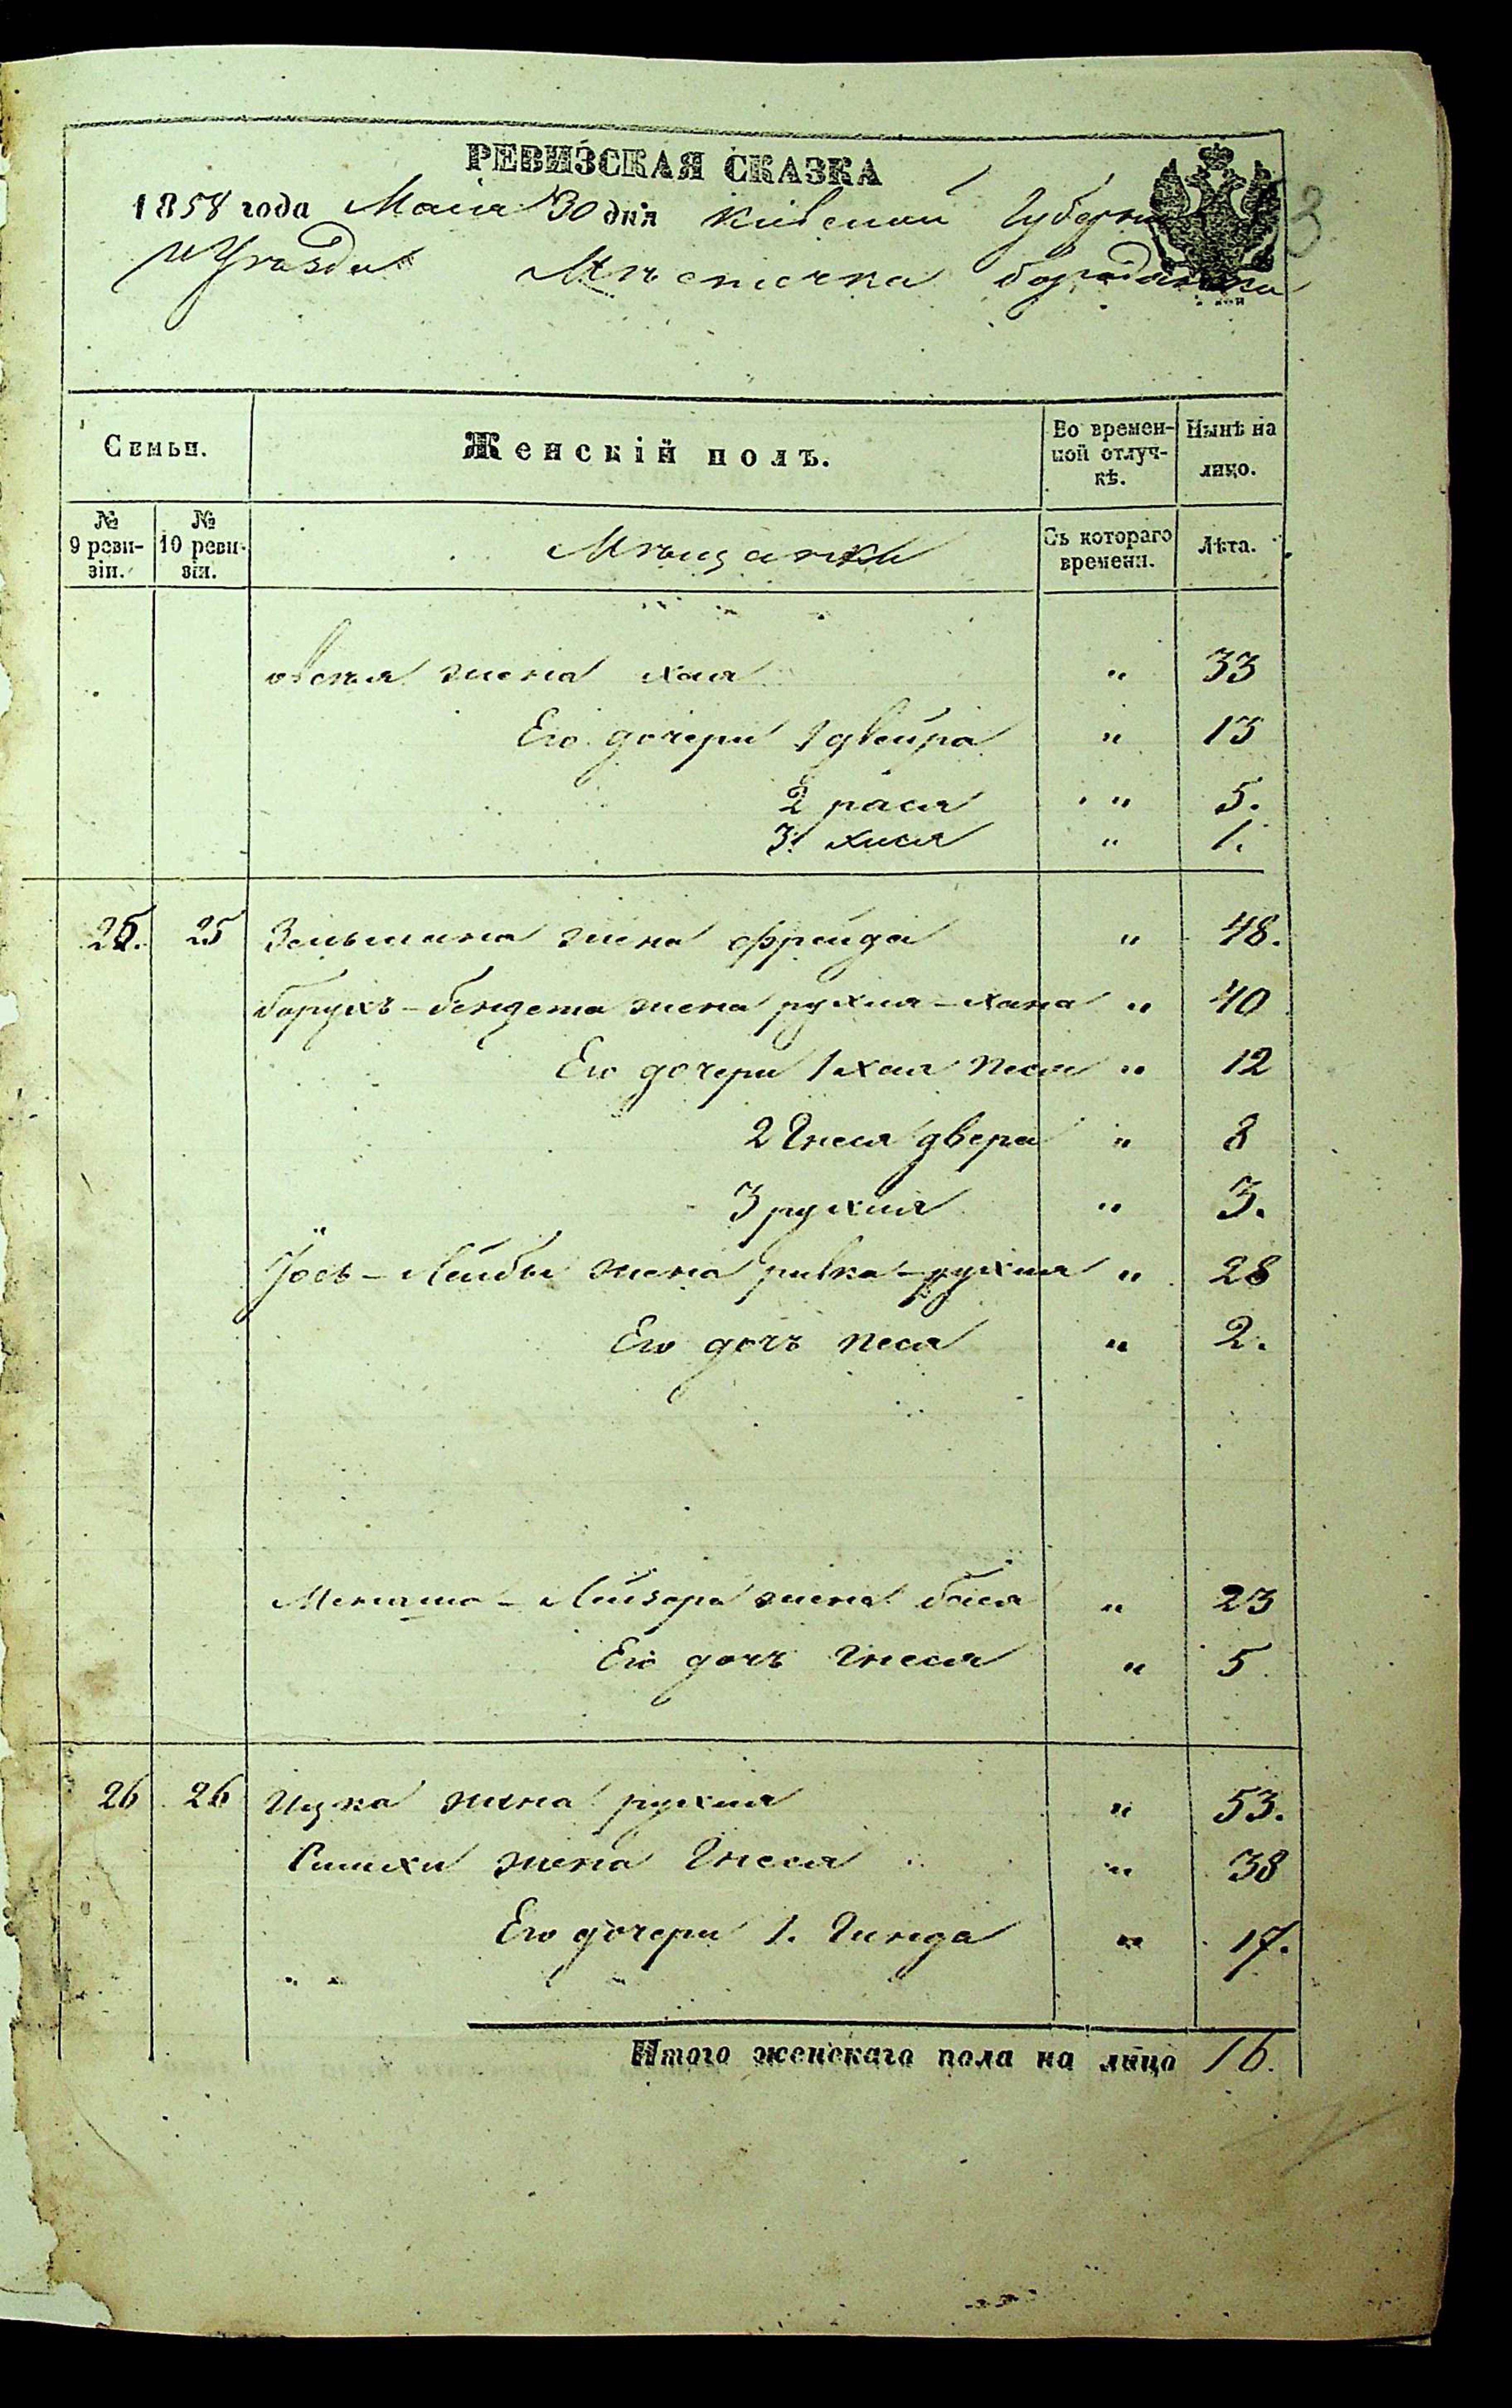 РЕВИЗСКАЯ СКАЗКА
1858 года Мая 30 дня Кіевской Губерніи
и Уѣзда Мѣстечка бородянка
3
Семьи.
Женскій полъ.
Во времен-
ной отлуч-
кѣ.
Нынѣ на
лицо.
№
9 реви-
зіи.
№
10 реви-
зіи.
Мѣщанки
Съ котораго
времени.
Лѣта.
овсѣя жена хая " 33
Его дочери 1 двейра " 13
2 рася " 5.
3 хися " 1.
25. 25 Зельмана жена фрейда " 48.
борухъ-бендета жена рухля-хана " 40
Его дочери 1 хая песя " 12
2 Гнеся двера " 8
3 рухля " 3.
Іось-Лейбы жена ривка-рухля " 28
Его дочь песя " 2.
Менаша-Лейзера жена бася " 23
Его дочь Гнеся " 5
26 26 Ицка жена рухля " 53.
Симхи жена Гнеся " 38
Его дочери 1. Гинда " 17.
Итого женскаго пола на лицо 16.